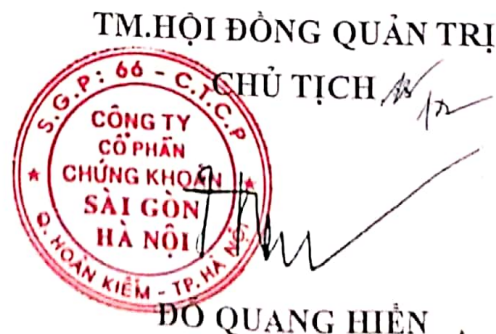 TM.HỘI ĐỒNG QUẢN TRỊ
CHỦ TỊCH
S.G.P: 66 - C.T.C.P
CÔNG TY
CỔ PHẦN
CHỨNG KHOÁN
SÀI GÒN
HÀ NỘI
Q. HOÀN KIẾM - TP. HÀ NỘI
ĐỖ QUANG HIỂN